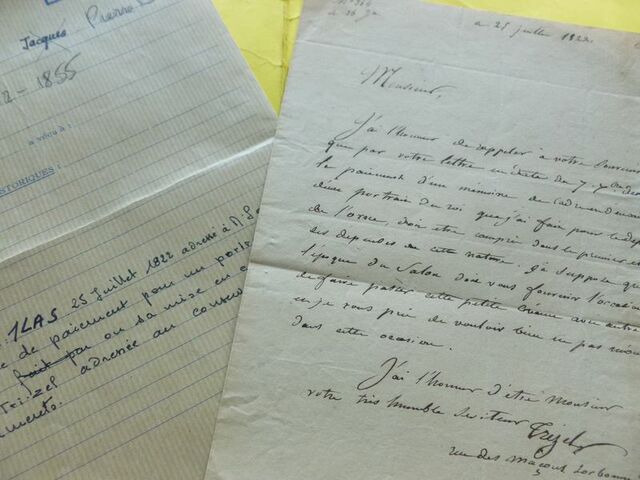 Jacques Pierre
2 - 1855
a vécu à :
HISTORIQUES
1LAS 25 Juillet 1822 adressé à M. de
de paiement pour un portr
fait par ou sa mise en
adressée au
ce 25 juillet 1822.
Monsieur,
J'ai l'honneur de rappeler à votre souvenir
que par votre lettre en date du 7
le paiement d'un mémoire de
d'un portrait du roi que j'ai fait pour le dép
de l'orne, doit être compris dans le premier
des dépenses de cette nature. J'ai supposé que
l'époque du Salon doit vous fournir l'occasion
de faire passer cette petite créance avec autres
et je vous prie de vouloir bien ne pas m'ou
dans cette occasion.
J'ai l'honneur d'être Monsieur
votre très humble Serviteur Trézel
rue des maçons Sorbonne